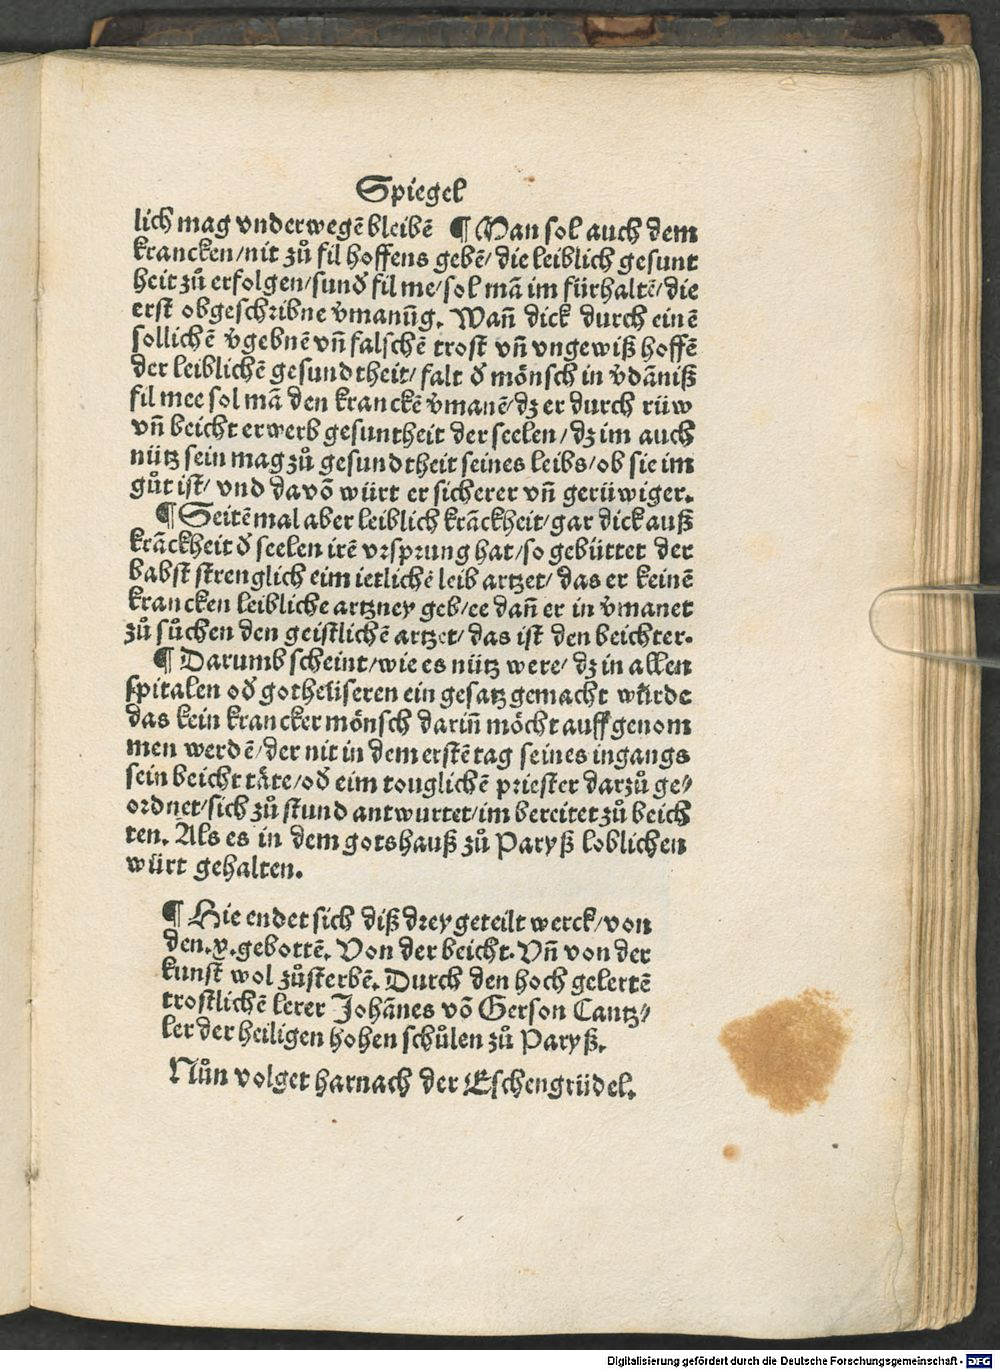 Spiegel
lich mag vnderwegē bleibē ¶ Man sol auch dem
krancken/nit zů fil hoffens gebē/die leiblich gesunt
heit zů erfolgen/sunđ fil me/sol mā im fürhaltē/die
erst obgeschribne v̄manūg. Wan̄ dick durch einē
sollichē v̄gebnē vn̄ falschē trost vn̄ vngewiß hoffē
der leiblichē gesundtheit/falt đ mönsch in v̄dāniß
fil mee sol mā den kranckē v̄manē/dz er durch rüw
vn̄ beicht erwerb gesuntheit der seelen/dz im auch
nütz sein mag zů gesundtheit seines leibs/ob sie im
gůt ist/vnd davō würt er sicherer vn̄ gerüwiger.
¶ Seitēmal aber leiblich krāckheit/gar dick auß
krāckheit đ seelen irē vrsprung hat/so gebüttet der
babst strenglich eim ietlichē leib artzet/das er keinē
krancken leibliche artzney geb/ee dan̄ er in v̄manet
zů sůchen den geistlichē artzet/das ist den beichter.
¶ Darumb scheint/wie es nütz were/dz in allen
spitalen ođ gotheüseren ein gesatz gemacht würde
das kein krancker mönsch darin̄ möcht auff genom
men werdē/der nit in dem erstē tag seines ingangs
sein beicht täte/ođ eim touglichē priester darzů ge/
ordnet/sich zů stund antwurtet/im bereitet zů beich
ten. Als es in dem gotshauß zů Paryß loblichen
würt gehalten.
¶ Hie endet sich diß drey geteilt werck/von
den.x.gebottē. Von der beicht. Vn̄ von der
kunst wol zůsterbē. Durch den hoch gelertē
trostlichē lerer Johānes vō Gerson Cantz/
ler der heiligen hohen schůlen zů Paryß.
Nůn volget harnach der Eschengrüdel.
Digitalisierung gefördert durch die Deutsche Forschungsgemeinschaft - DFG